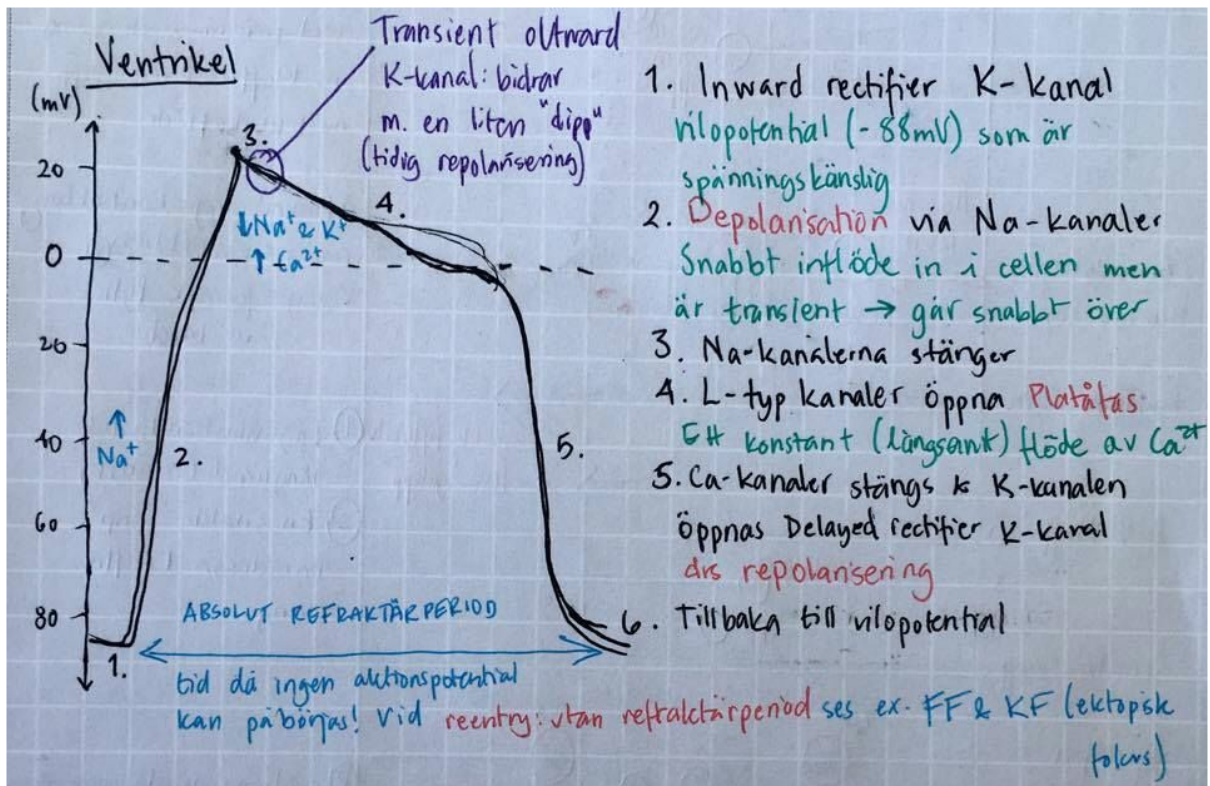 Ventrikel
(mV)
20
0
20
40
60
80
Transient outward
K-kanal: bidrar
m. en liten "dipp"
(tidig repolarisering)
3.
4.
↓Na⁺ & K⁺
↑ Ca²⁺
↑
Na⁺
2.
5.
1.
ABSOLUT REFRAKTÄRPERIOD
tid då ingen aktionspotential
kan påbörjas! Vid reentry: utan refraktärperiod ses ex. FF & KF (ektopisk
fokus)
1. Inward rectifier K-kanal
vilopotential (-88mV) som är
spänningskänslig
2. Depolarisation via Na-kanaler
Snabbt inflöde in i cellen men
är transient → går snabbt över
3. Na-kanalerna stänger
4. L-typ kanaler öppna Platåfas
Ett konstant (långsamt) flöde av Ca²⁺
5. Ca-kanaler stängs & K-kanalen
öppnas Delayed rectifier K-kanal
dvs repolarisering
6. Tillbaka till vilopotential